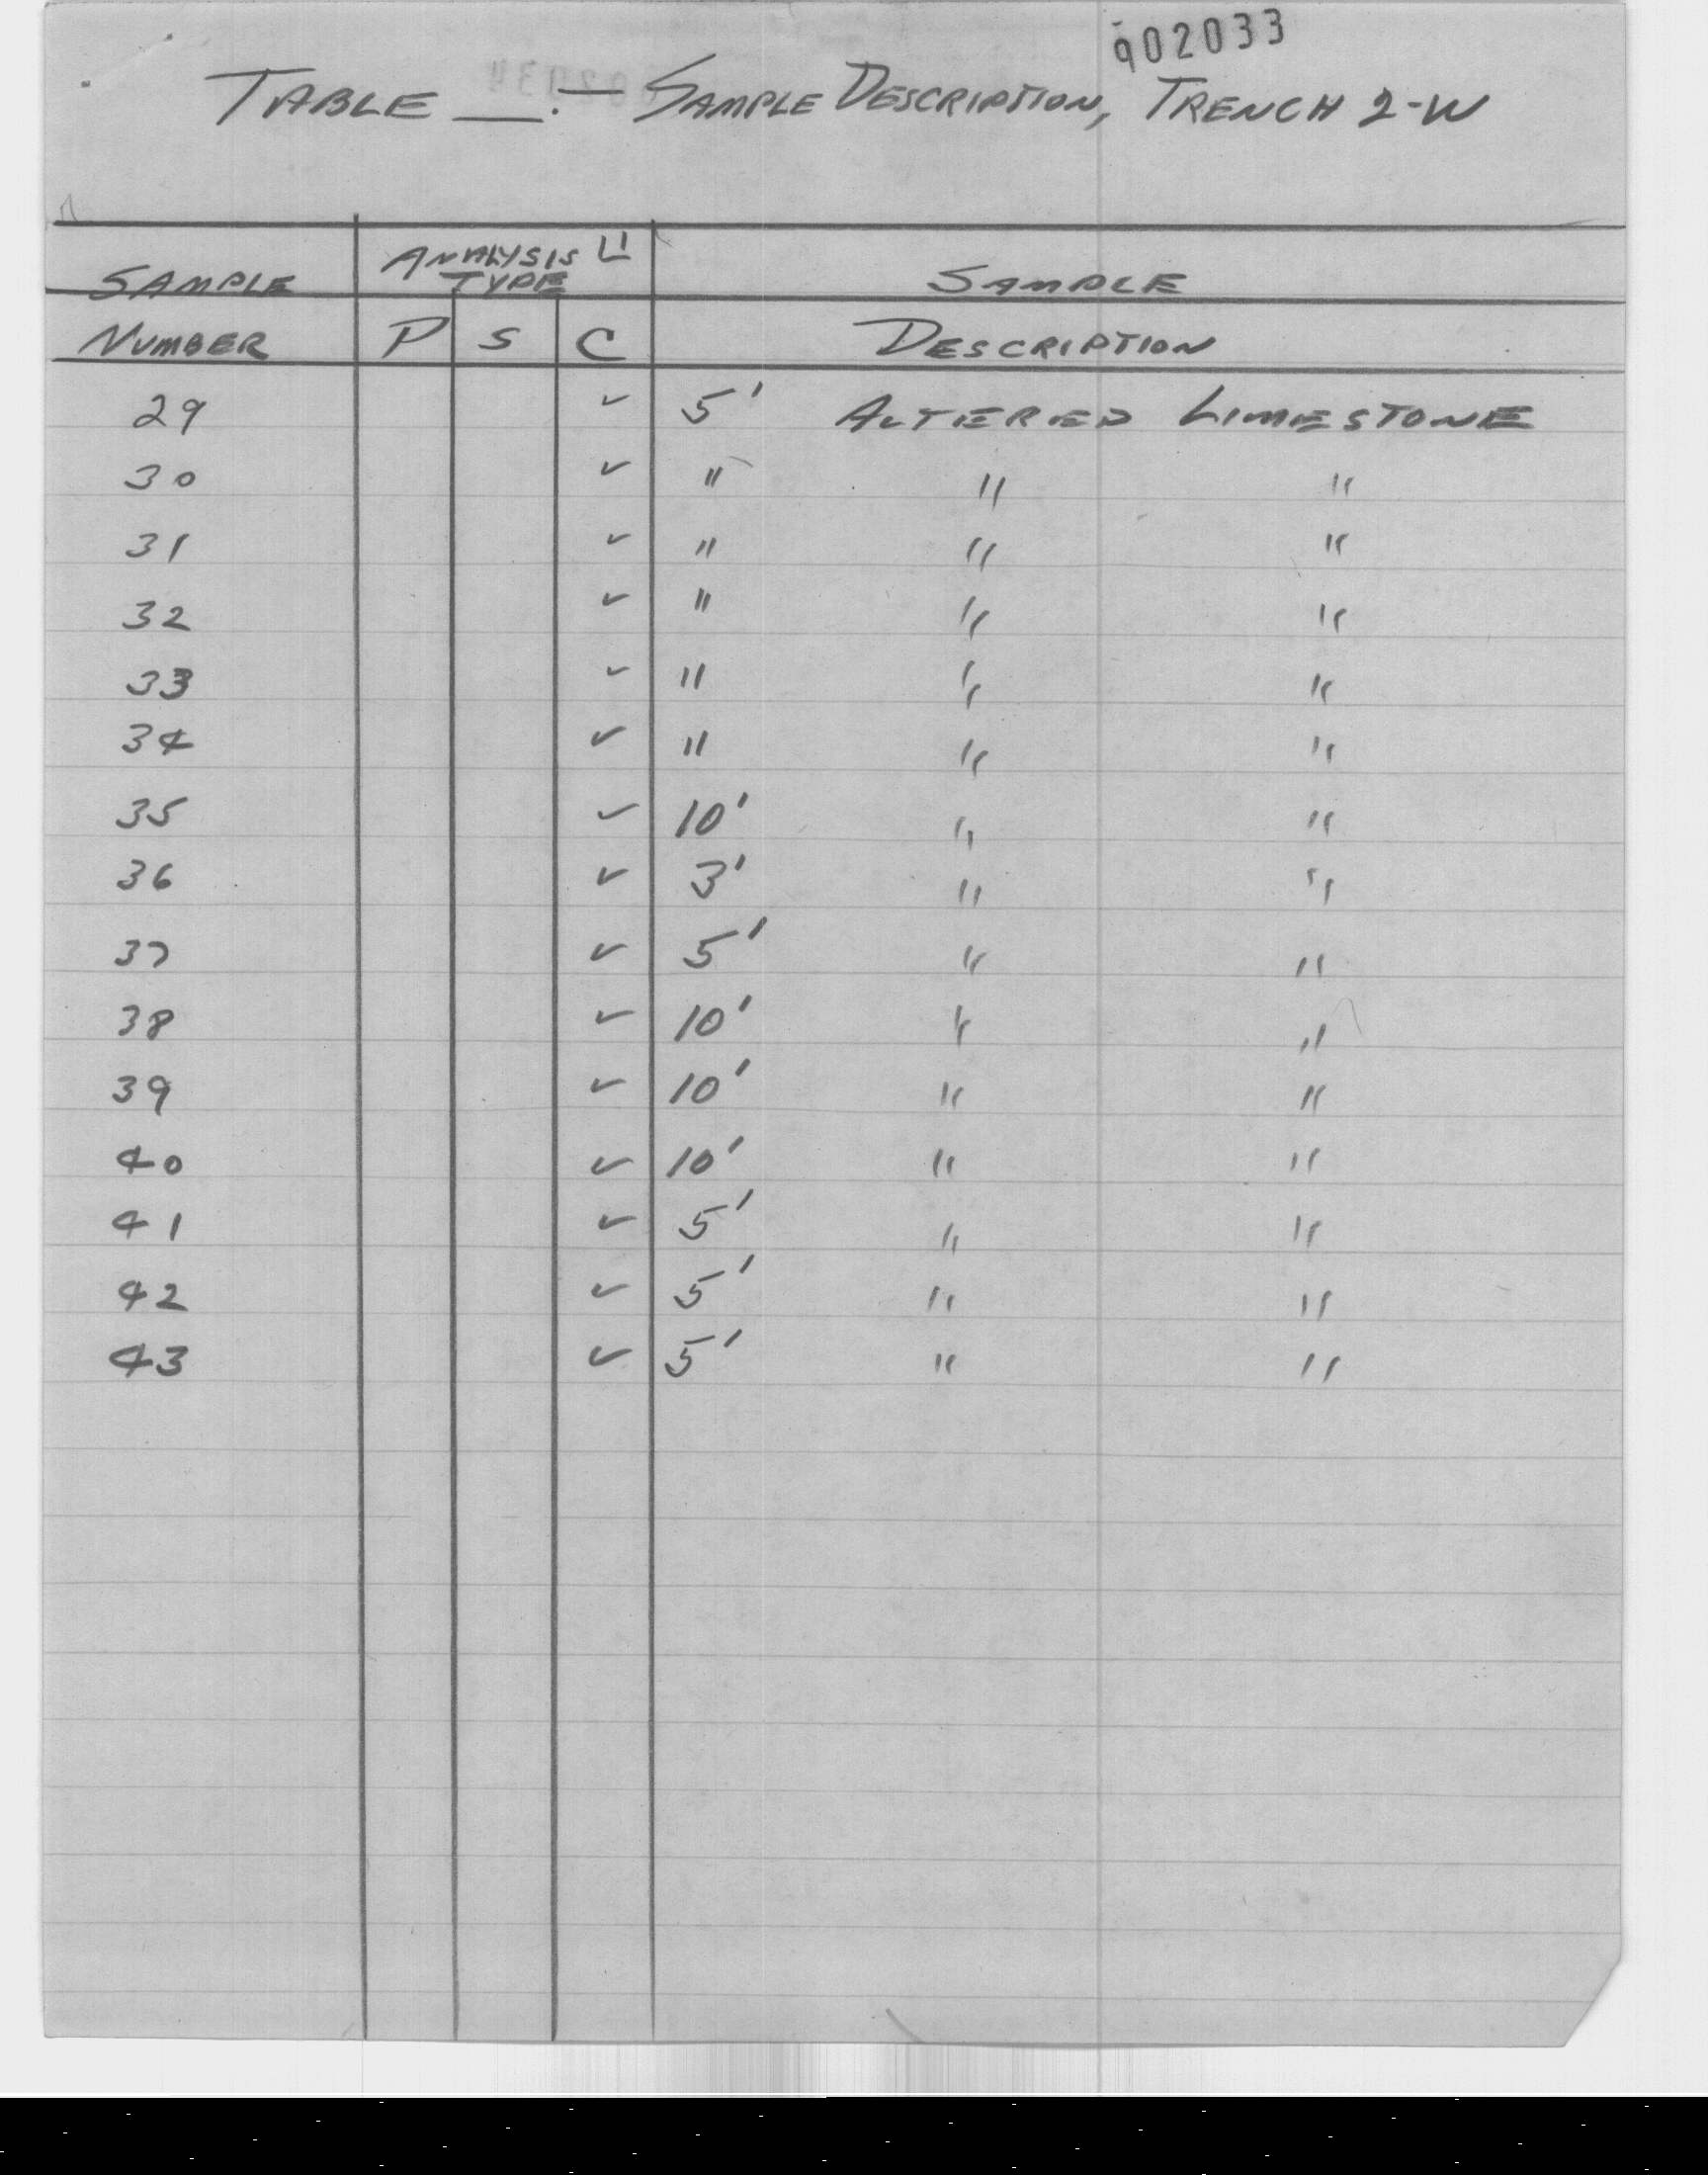 902033
TABLE __.— SAMPLE DESCRIPTION, TRENCH 2-W
SAMPLE ANALYSIS TYPE SAMPLE
NUMBER P S C DESCRIPTION
29 ✓ 5' ALTERED LIMESTONE
30 ✓ " " "
31 ✓ " " "
32 ✓ " " "
33 ✓ " " "
34 ✓ " " "
35 ✓ 10' " "
36 ✓ 3' " "
37 ✓ 5' " "
38 ✓ 10' " "
39 ✓ 10' " "
40 ✓ 10' " "
41 ✓ 5' " "
42 ✓ 5' " "
43 ✓ 5' " "